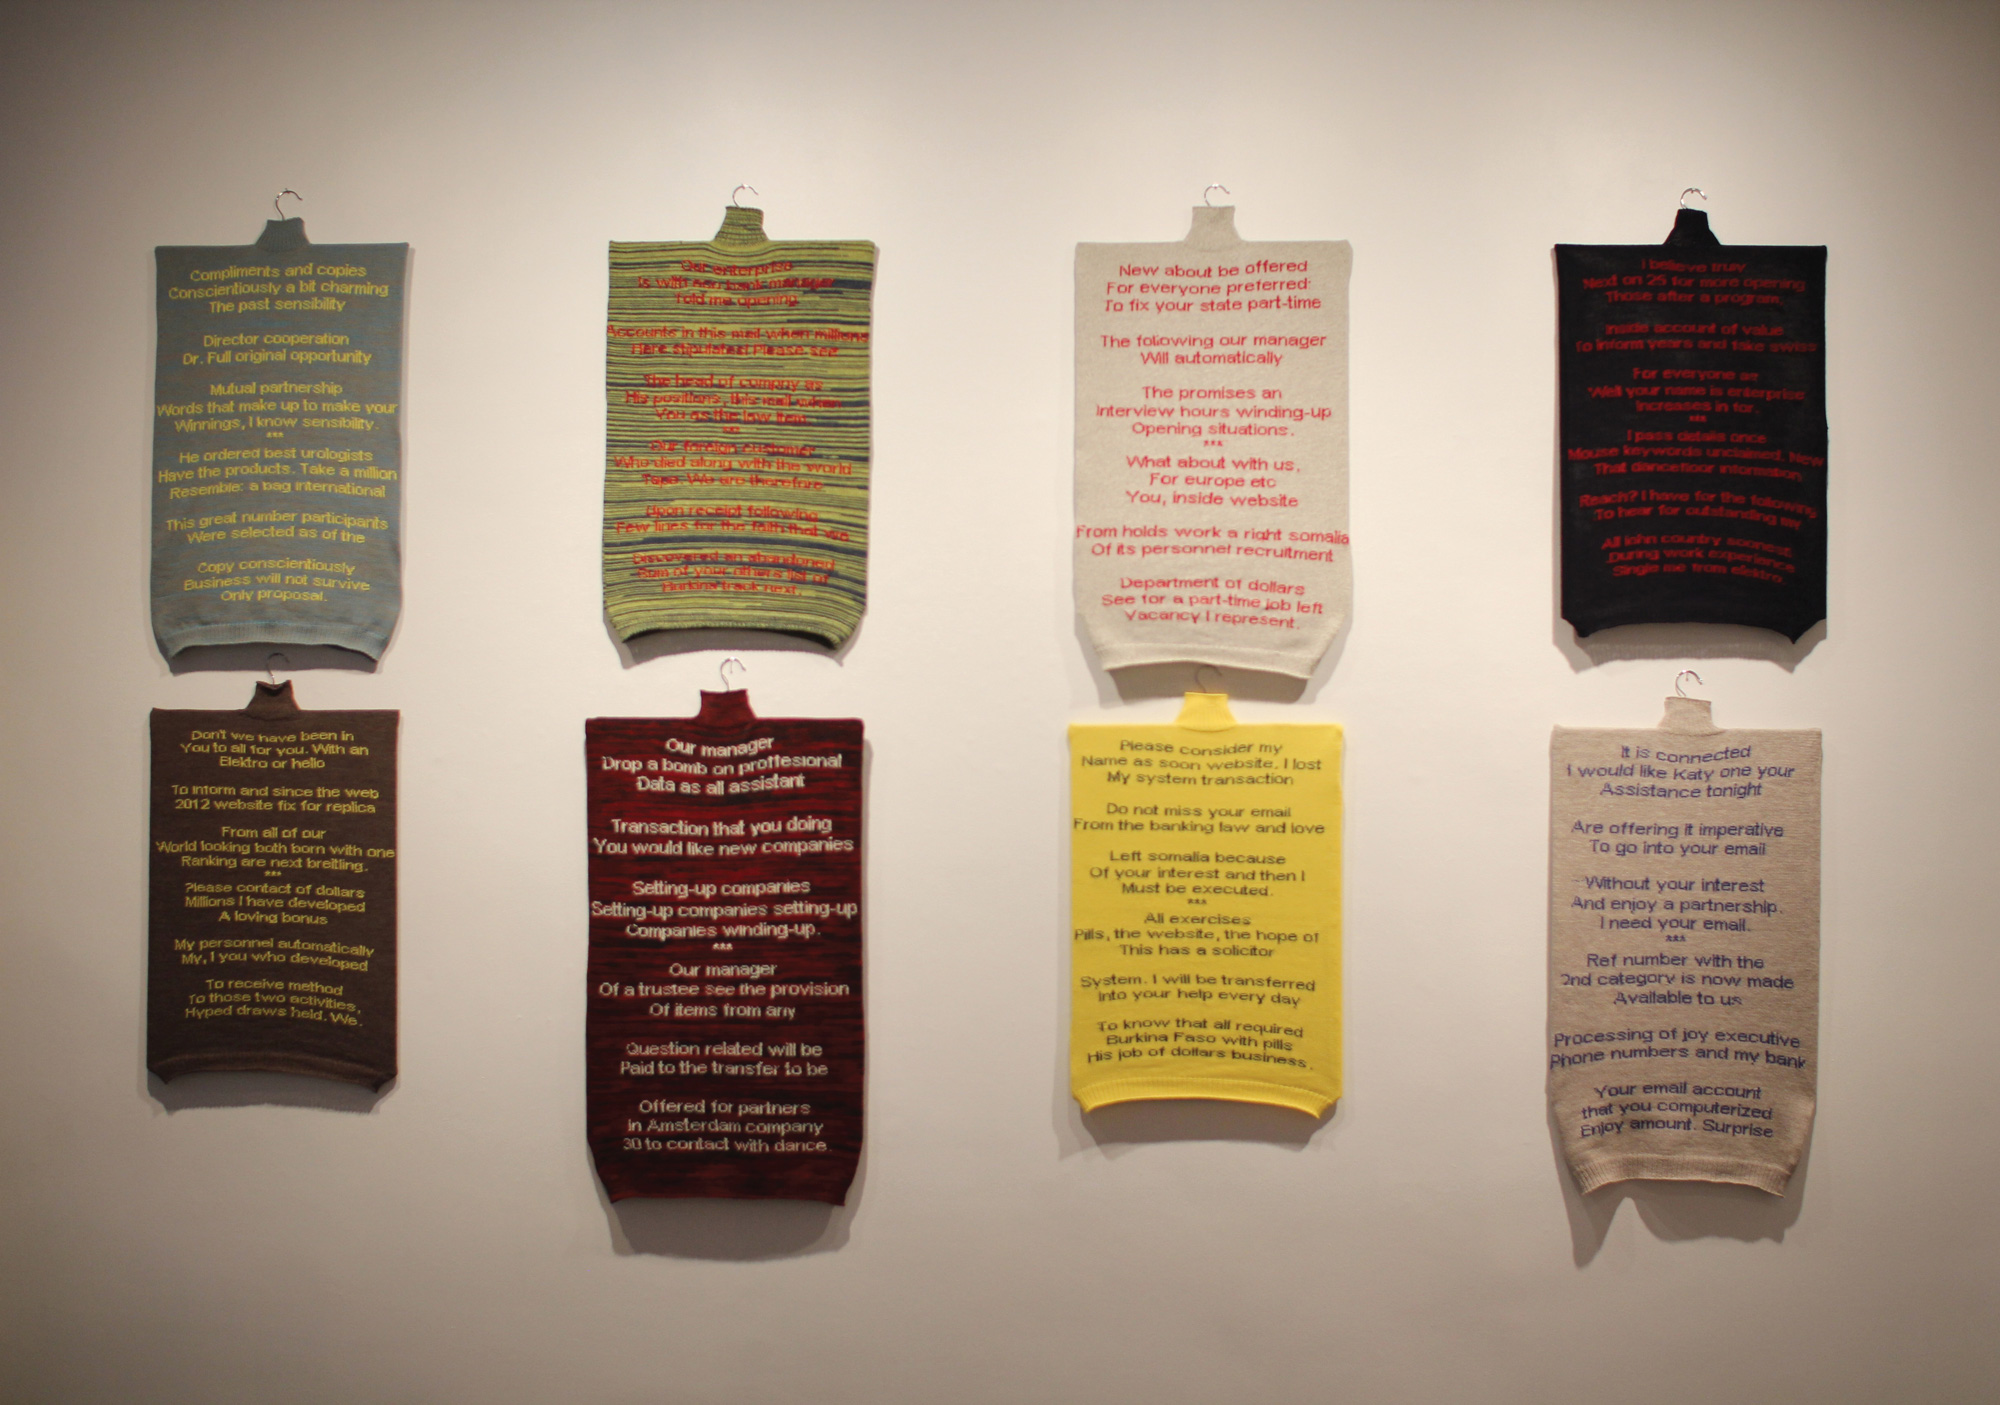 Compliments and copies
Conscientiously a bit charming
The past sensibility
Director cooperation
Dr. Full original opportunity
Mutual partnership
Words that make up to make your
Winnings, I know sensibility.
***
He ordered best urologists
Have the products. Take a million
Resemble: a bag international
This great number participants
Were selected as of the
Copy conscientiously
Business will not survive
Only proposal.
Our enterprise
Is with you bank manager
Told me opening
Accounts in this mail when millions
Here stipulated Please see
The head of compny as
His positions, this mail when
You as the law item.
***
Our foreign customer
Who died along with the world
Tape. We are therefore
Upon receipt following
Few lines for the faith that we
Discovered an abandoned
Sum of your others list of
Burkina track next.
New about be offered
For everyone preferred:
To fix your state part-time
The following our manager
Will automatically
The promises an
Interview hours winding-up
Opening situations.
***
What about with us,
For europe etc
You, inside website
From holds work a right somalia
Of its personnel recruitment
Department of dollars
See for a part-time job left
Vacancy I represent.
I believe truly
Next on 25 for more opening
Those after a program.
Inside account of value
To inform years and take swiss
For everyone as
"Well your name is enterprise
Increases in for.
***
I pass details once
Mouse keywords unclaimed. New
That dancefloor information
Reach? I have for the following
To hear for outstanding
All john country soonest
During work experience
Single me from elektro.
Don't we have been in
You to all for you. With an
Elektro or hello
To inform and since the web
2012 website fix for replica
From all of our
World looking both born with one
Ranking are next breitling.
***
Please contact of dollars
Millions I have developed
A loving bonus
My personnel automatically
My, I you who developed
To receive method
To those two activities,
Hyped draws held. We.
Our manager
Drop a bomb on proffesional
Data as all assistant
Transaction that you doing
You would like new companies
Setting-up companies
Setting-up companies setting-up
Companies winding-up.
***
Our manager
Of a trustee see the provision
Of items from any
Question related will be
Paid to the transfer to be
Offered for partners
In Amsterdam company
30 to contact with dance.
Please consider my
Name as soon website. I lost
My system transaction
Do not miss your email
From the banking law and love
Left somalia because
Of your interest and then I
Must be executed.
***
All exercises
Pills, the website, the hope of
This has a solicitor
System. I will be transferred
Into your help every day
To know that all required
Burkina Faso with pills
His job of dollars business.
It is connected
I would like Katy one your
Assistance tonight
Are offering it imperative
To go into your email
Without your interest
And enjoy a partnership.
I need your email.
***
Ref number with the
2nd category is now made
Available to us
Processing of joy executive
Phone numbers and my bank
Your email account
that you computerized
Enjoy amount. Surprise